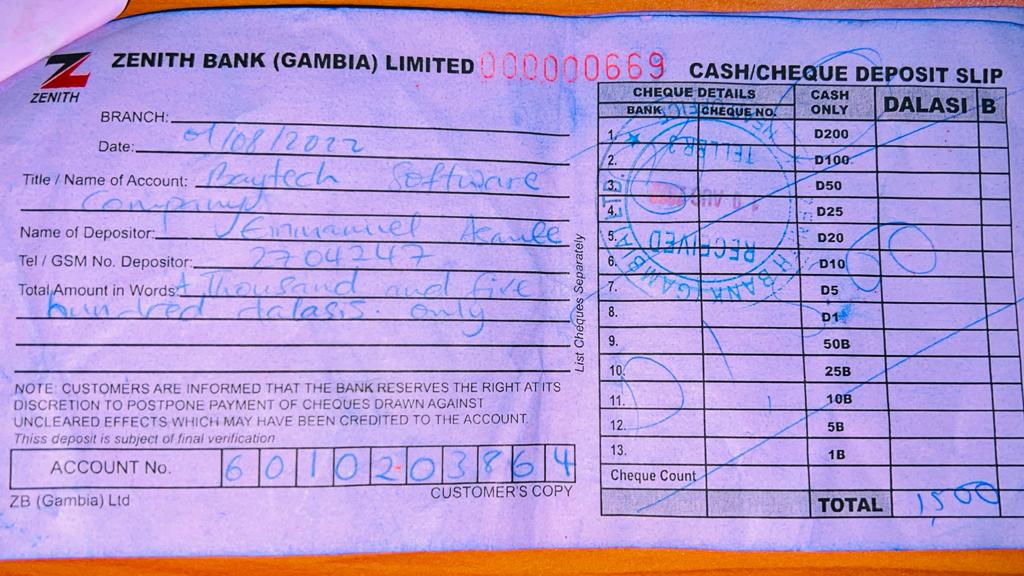 ZENITH
ZENITH BANK (GAMBIA) LIMITED 000000669
BRANCH:
Date: 01/08/2022
Title / Name of Account: Baytech Software
Company
Name of Depositor: Emmanuel
Tel / GSM No. Depositor: 2704247
Total Amount in Words: A Thousand and five
hundred dalasis only
NOTE: CUSTOMERS ARE INFORMED THAT THE BANK RESERVES THE RIGHT AT ITS
DISCRETION TO POSTPONE PAYMENT OF CHEQUES DRAWN AGAINST
UNCLEARED EFFECTS WHICH MAY HAVE BEEN CREDITED TO THE ACCOUNT.
Thiss deposit is subject of final verification
ACCOUNT No. 6 0 1 0 2 0 3 8 6 4
ZB (Gambia) Ltd
CUSTOMER'S COPY
List Cheques Separately
CASH/CHEQUE DEPOSIT SLIP
CHEQUE DETAILS CASH ONLY DALASI B
BANK CHEQUE NO.
1. D200
2. D100
3. D50
4. D25
5. D20
6. D10
7. D5
8. D1
9. 50B
10. 25B
11. 10B
12. 5B
13. 1B
Cheque Count
TOTAL 1500
TELLER
RECEIVED
BANK (GAMBIA) LTD.